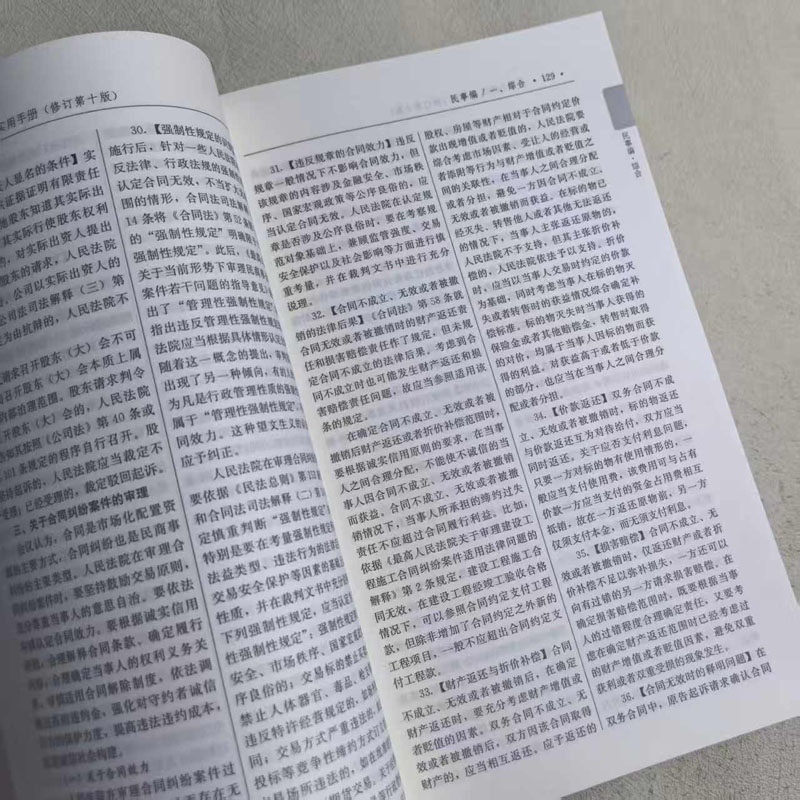 实用手册（修订第十版）
人显名的条件】实
东证据证明有限责任
他股东知道其实际出
其实际行使股东权利
，对实际出资人提出
股东的请求，人民法院
公司以实际出资人的
公司法司法解释（三）第
为由抗辩的，人民法院不
请求召开股东（大）会不可
司召开股东（大）会本质上属
内部治理范围。股东请求判令
开股东（大）会的，人民法院
告知其按照《公司法》第40条或
101条规定的程序自行召开。股东
坚持起诉的，人民法院应当裁定不
受理；已经受理的，裁定驳回起诉。
三、关于合同纠纷案件的审理
会议认为，合同是市场化配置资
源的主要方式，合同纠纷也是民商事
纠纷的主要类型。人民法院在审理合
同纠纷案件时，要坚持鼓励交易原则，
充分尊重当事人的意思自治。要依法
审慎认定合同效力。要根据诚实信用
原则，合理解释合同条款、确定履行
内容，合理确定当事人的权利义务关
系，审慎适用合同解除制度，依法调
整过高的违约金，强化对守约者诚信
行为的保护力度，提高违法违约成本，
促进诚信社会构建。
（一）关于合同效力
人民法院在审理合同纠纷案件过
30.【强制性规定的
施行后，针对一些人民法
反法律、行政法规的强制
认定合同无效，不当扩大
围的情形，合同法司法解
14条将《合同法》第52条
的“强制性规定”明确限
强制性规定”。此后，《
关于当前形势下审理民商
案件若干问题的指导意见
出了“管理性强制性规定
指出违反管理性强制性规
法院应当根据具体情形认
随着这一概念的提出，审
出现了另一种倾向，有的
为凡是行政管理性质的强
属于“管理性强制性规定
同效力。这种望文生义的
应予纠正。
人民法院在审理合同纠
要依据《民法总则》第153
和合同法司法解释（二）第
定慎重判断“强制性规定
特别是要在考量强制性规定
法益类型、违法行为的法律
交易安全保护等因素的基础
性质，并在裁判文书中充分
下列强制性规定，应当认定
性强制性规定”：强制性规定
安全、市场秩序、国家宏观
序良俗的；交易标的禁止买
禁止人体器官、毒品、枪支
违反特许经营规定的，如场
同；交易方式严重违法的，
投标等竞争性缔约方式订立
易场所违法的，如在批准的
民事编/一、综合·129·
31.【违反规章的合同效力】违反
规章一般情况下不影响合同效力，但
该规章的内容涉及金融安全、市场秩
序、国家宏观政策等公序良俗的，应
当认定合同无效。人民法院在认定规
章是否涉及公序良俗时，要在考察规
范对象基础上，兼顾监管强度、交易
安全保护以及社会影响等方面进行慎
重考量，并在裁判文书中进行充分
说理。
32.【合同不成立、无效或者被撤
销的法律后果】《合同法》第58条就
合同无效或者被撤销时的财产返还责
任和损害赔偿责任作了规定，但未规
定合同不成立的法律后果。考虑到合
同不成立时也可能发生财产返还和损
害赔偿责任问题，故应当参照适用该
条的规定。
在确定合同不成立、无效或者被
撤销后财产返还或者折价补偿范围时，
要根据诚实信用原则的要求，在当事
人之间合理分配，不能使不诚信的当
事人因合同不成立、无效或者被撤销
而获益。合同不成立、无效或者被撤
销情况下，当事人所承担的缔约过失
责任不应超过合同履行利益。比如，
依据《最高人民法院关于审理建设工
程施工合同纠纷案件适用法律问题的
解释》第2条规定，建设工程施工合
同无效，在建设工程经竣工验收合格
情况下，可以参照合同约定支付工程
款，但除非增加了合同约定之外新的
工程项目，一般不应超出合同约定支
付工程款。
33.【财产返还与折价补偿】合同
不成立、无效或者被撤销后，在确定
财产返还时，要充分考虑财产增值或
者贬值的因素。双务合同不成立、无
效或者被撤销后，双方因该合同取得
财产的，应当相互返还。应予返还的
股权、房屋等财产相对于合同约定价
款出现增值或者贬值的，人民法院要
综合考虑市场因素、受让人的经营或
者添附等行为与财产增值或者贬值之
间的关联性，在当事人之间合理分配
或者分担，避免一方因合同不成立、
无效或者被撤销而获益。在标的物已
经灭失、转售他人或者其他无法返还
的情况下，当事人主张返还原物的，
人民法院不予支持，但其主张折价补
偿的，人民法院依法予以支持。折价
时，应当以当事人交易时约定的价款
为基础，同时考虑当事人在标的物灭
失或者转售时的获益情况综合确定补
偿标准。标的物灭失时当事人获得的
保险金或者其他赔偿金，转售时取得
的对价，均属于当事人因标的物而获
得的利益。对获益高于或者低于价款
的部分，也应当在当事人之间合理分
配或者分担。
34.【价款返还】双务合同不成
立、无效或者被撤销时，标的物返还
与价款返还互为对待给付，双方应当
同时返还。关于应否支付利息问题，
只要一方对标的物有使用情形的，一
般应当支付使用费，该费用可与占有
价款一方应当支付的资金占用费相互
抵销，故在一方返还原物前，另一方
仅须支付本金，而无须支付利息。
35.【损害赔偿】合同不成立、无
效或者被撤销时，仅返还财产或者折
价补偿不足以弥补损失，一方还可以
向有过错的另一方请求损害赔偿。在
确定损害赔偿范围时，既要根据当事
人的过错程度合理确定责任，又要考
虑在确定财产返还范围时已经考虑过
的财产增值或者贬值因素，避免双重
获利或者双重受损的现象发生。
36.【合同无效时的释明问题】在
双务合同中，原告起诉请求确认合同
民事编·综合